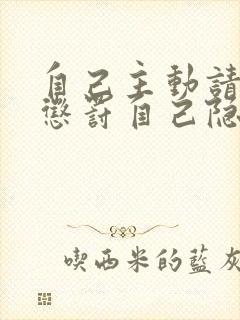 自己主動請
懲罰自己隐
喫西米的藍灰